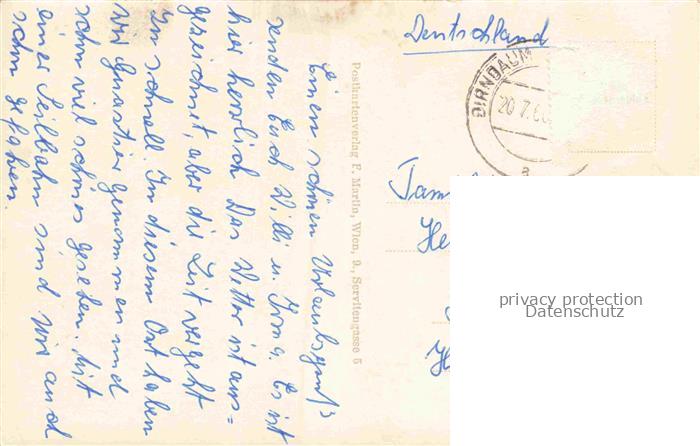 Einen schönen Urlaubsgruß
senden Euch Willi u. Irma. Es ist
hier herrlich Das Wetter ist aus=
gezeichnet, aber die Zeit vergeht
zu schnell. In diesem Ort haben
wir Quartier genommen und
schon viel schönes gesehen. Mit
einer Seilbahn sind wir auch
schon gefahren.
Postkartenverlag F. Martin, Wien, 9., Servitengasse 5
Deutschland
DIRNBAUM
20.7.6
a
Fam
He
H
privacy protection
Datenschutz